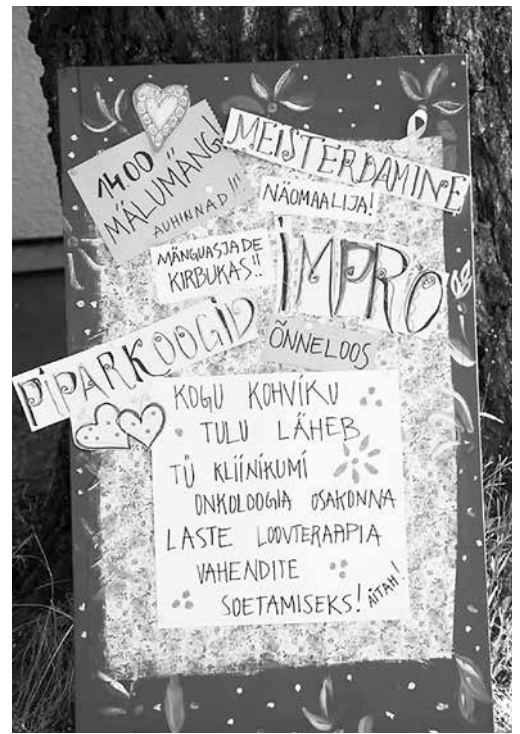 14.00
MÄLUMÄNG!
AUHINNAD!!!
MEISTERDAMINE
NÄOMAALIJA!
MÄNGUASJADE
KIRBUKAS!!
IMPRO
PIPARKOOGID
ÕNNELOOS
KOGU KOHVIKU
TULU LÄHEB
TÜ KLIINIKUMI
ONKOLOOGIA OSAKONNA
LASTE LOOVTERAAPIA
VAHENDITE
SOETAMISEKS! AITÄH!